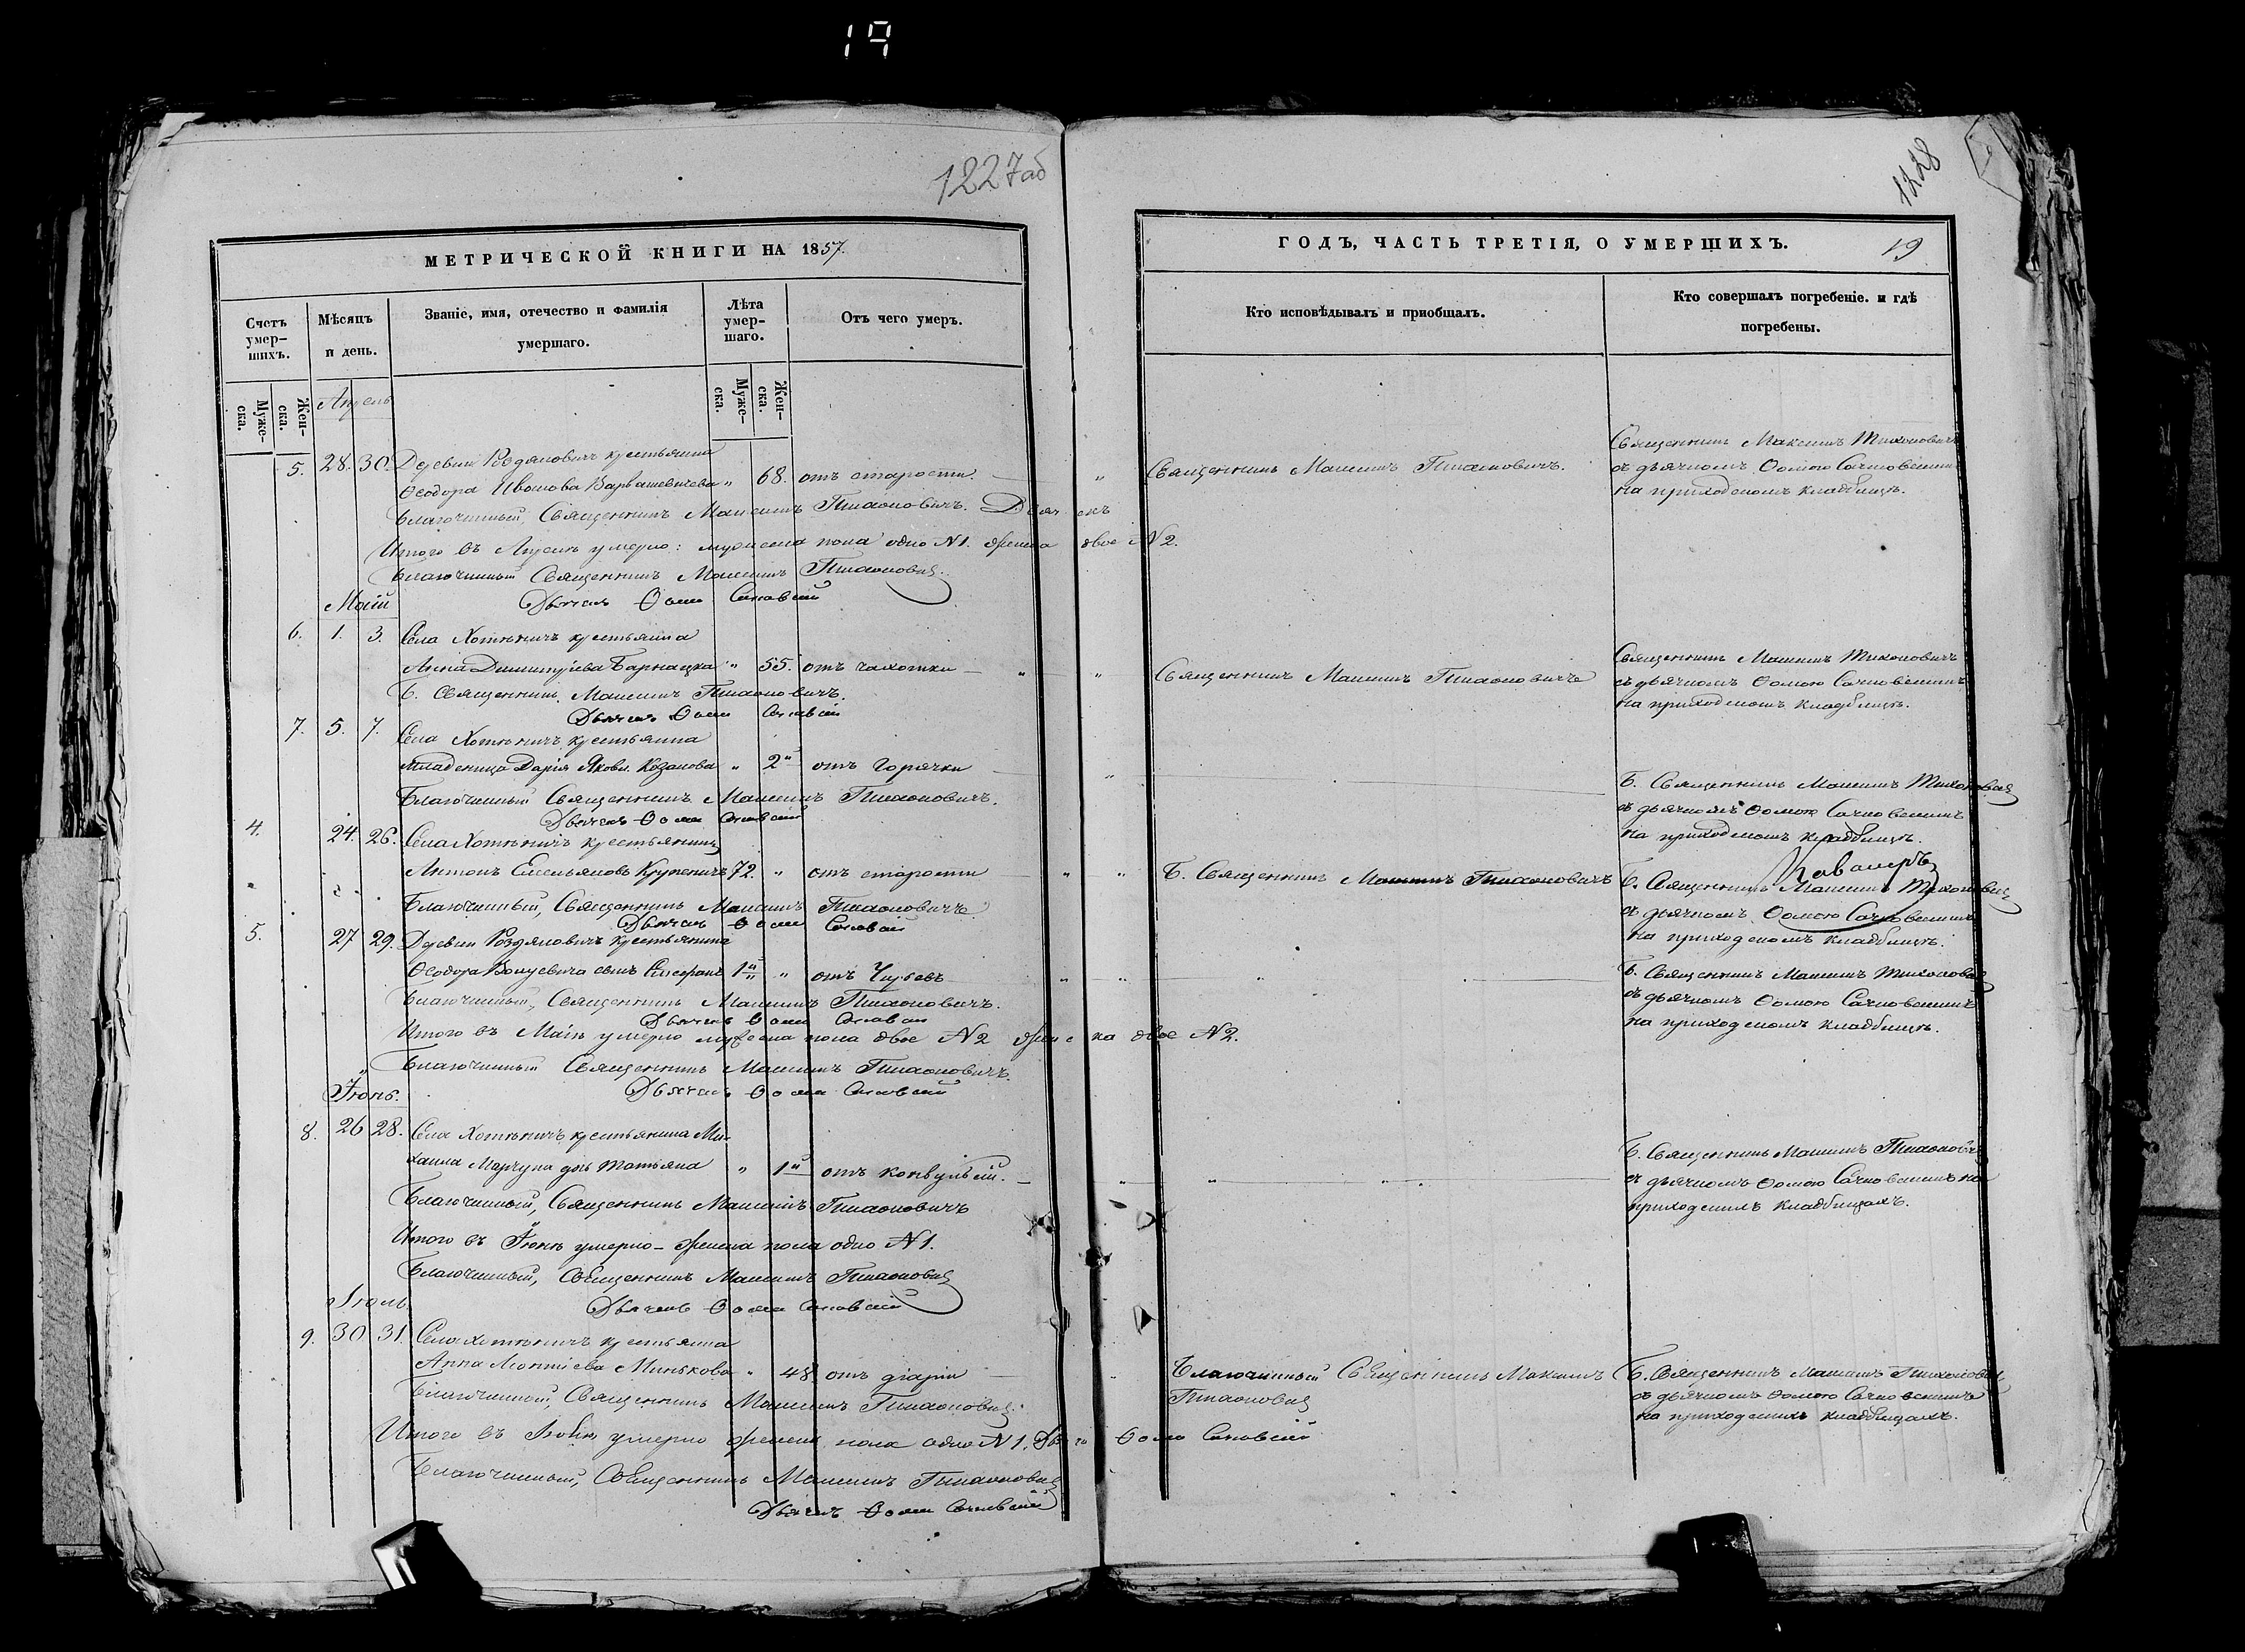 19
1227об
1228
МЕТРИЧЕСКОЙ КНИГИ НА 1857.
Счетъ умер-шихъ.
Мѣсяцъ и день.
Званіе, имя, отечество и фамилія умершаго.
Лѣта умер-шаго.
Отъ чего умеръ.
Муже-ска.
Жен-ска.
Муже-ска.
Жен-ска.
Апрель
5. 28. 30. Деревни крестьянина
Ѳеодора Иванова " 68. отъ старости.
Благочинный Священникъ Максимъ Тихоновичъ.
Итого въ Апрелѣ умерло: мужеска пола одно №1. женска двое №2.
Благочинный Священникъ Максимъ Тихоновичъ
Дьячекъ Ѳома
Маій
6. 1. 3. Села Хотѣничъ крестьянка
Анна Димитріева " 55. отъ чахотки
Б. Священникъ Максимъ Тихоновичъ.
Дьячекъ Ѳома
7. 5. 7. Села Хотѣничъ крестьянина
Младеница Дарія Яковл. Козакова " 2 отъ горячки
Благочинный Священникъ Максимъ Тихоновичъ.
Дьячекъ Ѳома
4. 24. 26. Села Хотѣничъ крестьянинъ
Антонъ Емельяновъ 72. " отъ старости
Благочинный, Священникъ Максимъ Тихоновичъ
Дьячекъ Ѳома
5. 27 29. Деревни крестьянина
Ѳеодора сынъ 1 " отъ
Благочинный, Священникъ Максимъ Тихоновичъ.
Дьячекъ Ѳома
Итого въ Маіѣ умерло мужеска пола двое №2 женска двое №2.
Благочинный Священникъ Максимъ Тихоновичъ.
Дьячекъ Ѳома
Іюнь.
8. 26 28. Села Хотѣничъ крестьянина Ми-
хаила дочь Татьяна " 1 отъ конвульсій.
Благочинный, Священникъ Максимъ Тихоновичъ
Итого въ Іюнѣ умерло женска пола одно №1.
Благочинный, Священникъ Максимъ Тихоновичъ
Дьячекъ Ѳома
Іюль.
9. 30 31. Села Хотѣничъ крестьянка
Анна Минькова " 48 отъ діаріи
Благочинный, Священникъ Максимъ Тихоновичъ.
Итого въ Іюлѣ умерло женска пола одно №1. Ѳома
Благочинный, Священникъ Максимъ Тихоновичъ
Дьячекъ Ѳома
ГОДЪ, ЧАСТЬ ТРЕТІЯ, О УМЕРШИХЪ.
19
Кто исповѣдывалъ и пріобщалъ.
Кто совершалъ погребеніе. и гдѣ погребены.
Священникъ Максимъ Тихоновичъ.
Священникъ Максимъ Тихоновичъ
съ дьячкомъ Ѳомою
на приходскомъ кладбищѣ.
Священникъ Максимъ Тихоновичъ
Священникъ Максимъ Тихоновичъ
съ дьячкомъ Ѳомою
на приходскомъ кладбищѣ.
Б. Священникъ Максимъ Тихоновичъ
съ дьячкомъ Ѳомою
на приходскомъ кладбищѣ.
Б. Священникъ Максимъ Тихоновичъ
Б. Священникъ Максимъ Тихоновичъ
съ дьячкомъ Ѳомою
на приходскомъ кладбищѣ.
Б. Священникъ Максимъ Тихоновичъ
съ дьячкомъ Ѳомою
на приходскомъ кладбищѣ.
Б. Священникъ Максимъ Тихоновичъ
съ дьячкомъ Ѳомою на
приходскимъ кладбищахъ.
Благочинный Священникъ Максимъ
Тихоновичъ
Б. Священникъ Максимъ Тихоновичъ
съ дьячкомъ Ѳомою
на приходскихъ кладбищахъ.